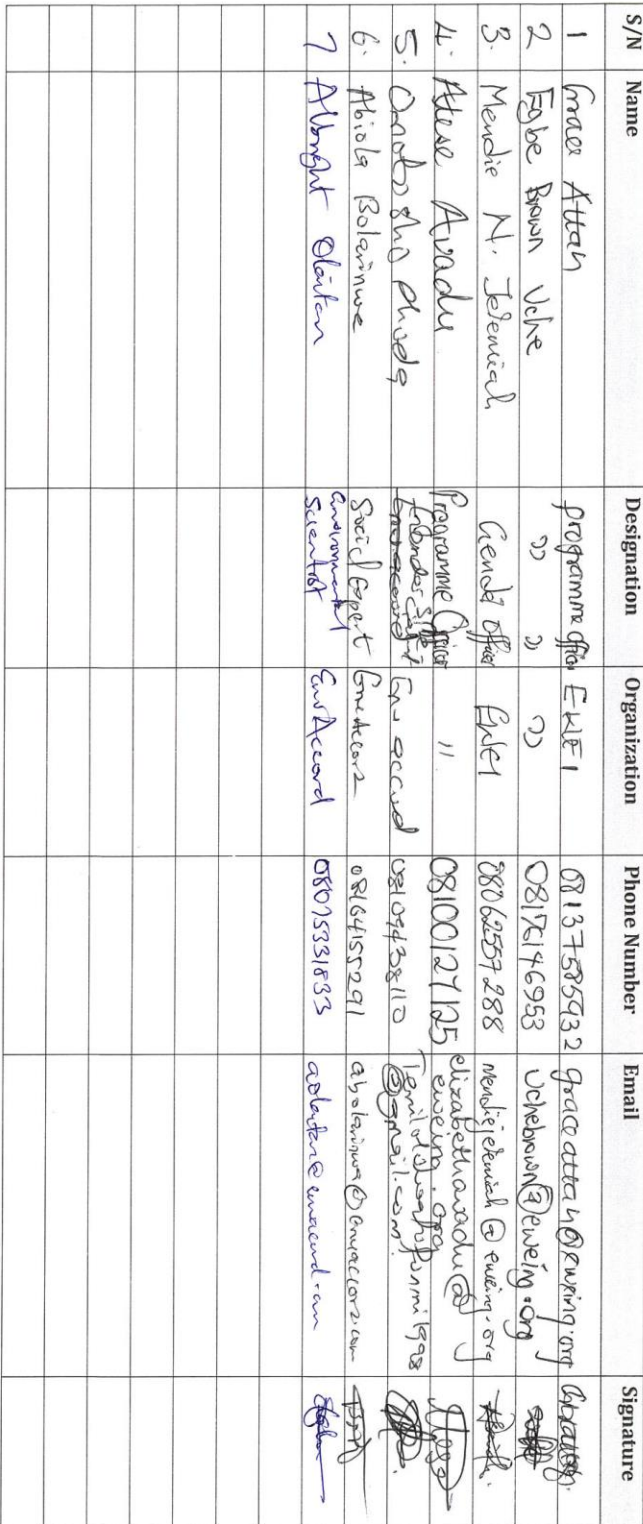 S/N Name Designation Organization Phone Number Email Signature
1 Grace Attah programme officer EWEI 08137585932 graceattah@eweing.org
2 Egbe Brown Uche " " " 08176146953 Uchebrown@eweing.org
3. Mendie N. Jeremiah Gender officer EWEI 08062557288 mendiejeremiah@eweing.org
4. Atese Avadu Programme Officer " 08100127125 elizabethavadu@
eweing.org
5. Env accord 08109438110
@gmail.com
6. Abiola Bolarinwa Social Expert EnvAccord 08164155291 abolarinwa@envaccord.com
7 Albright Olaitan Environmental
Scientist EnvAccord 080